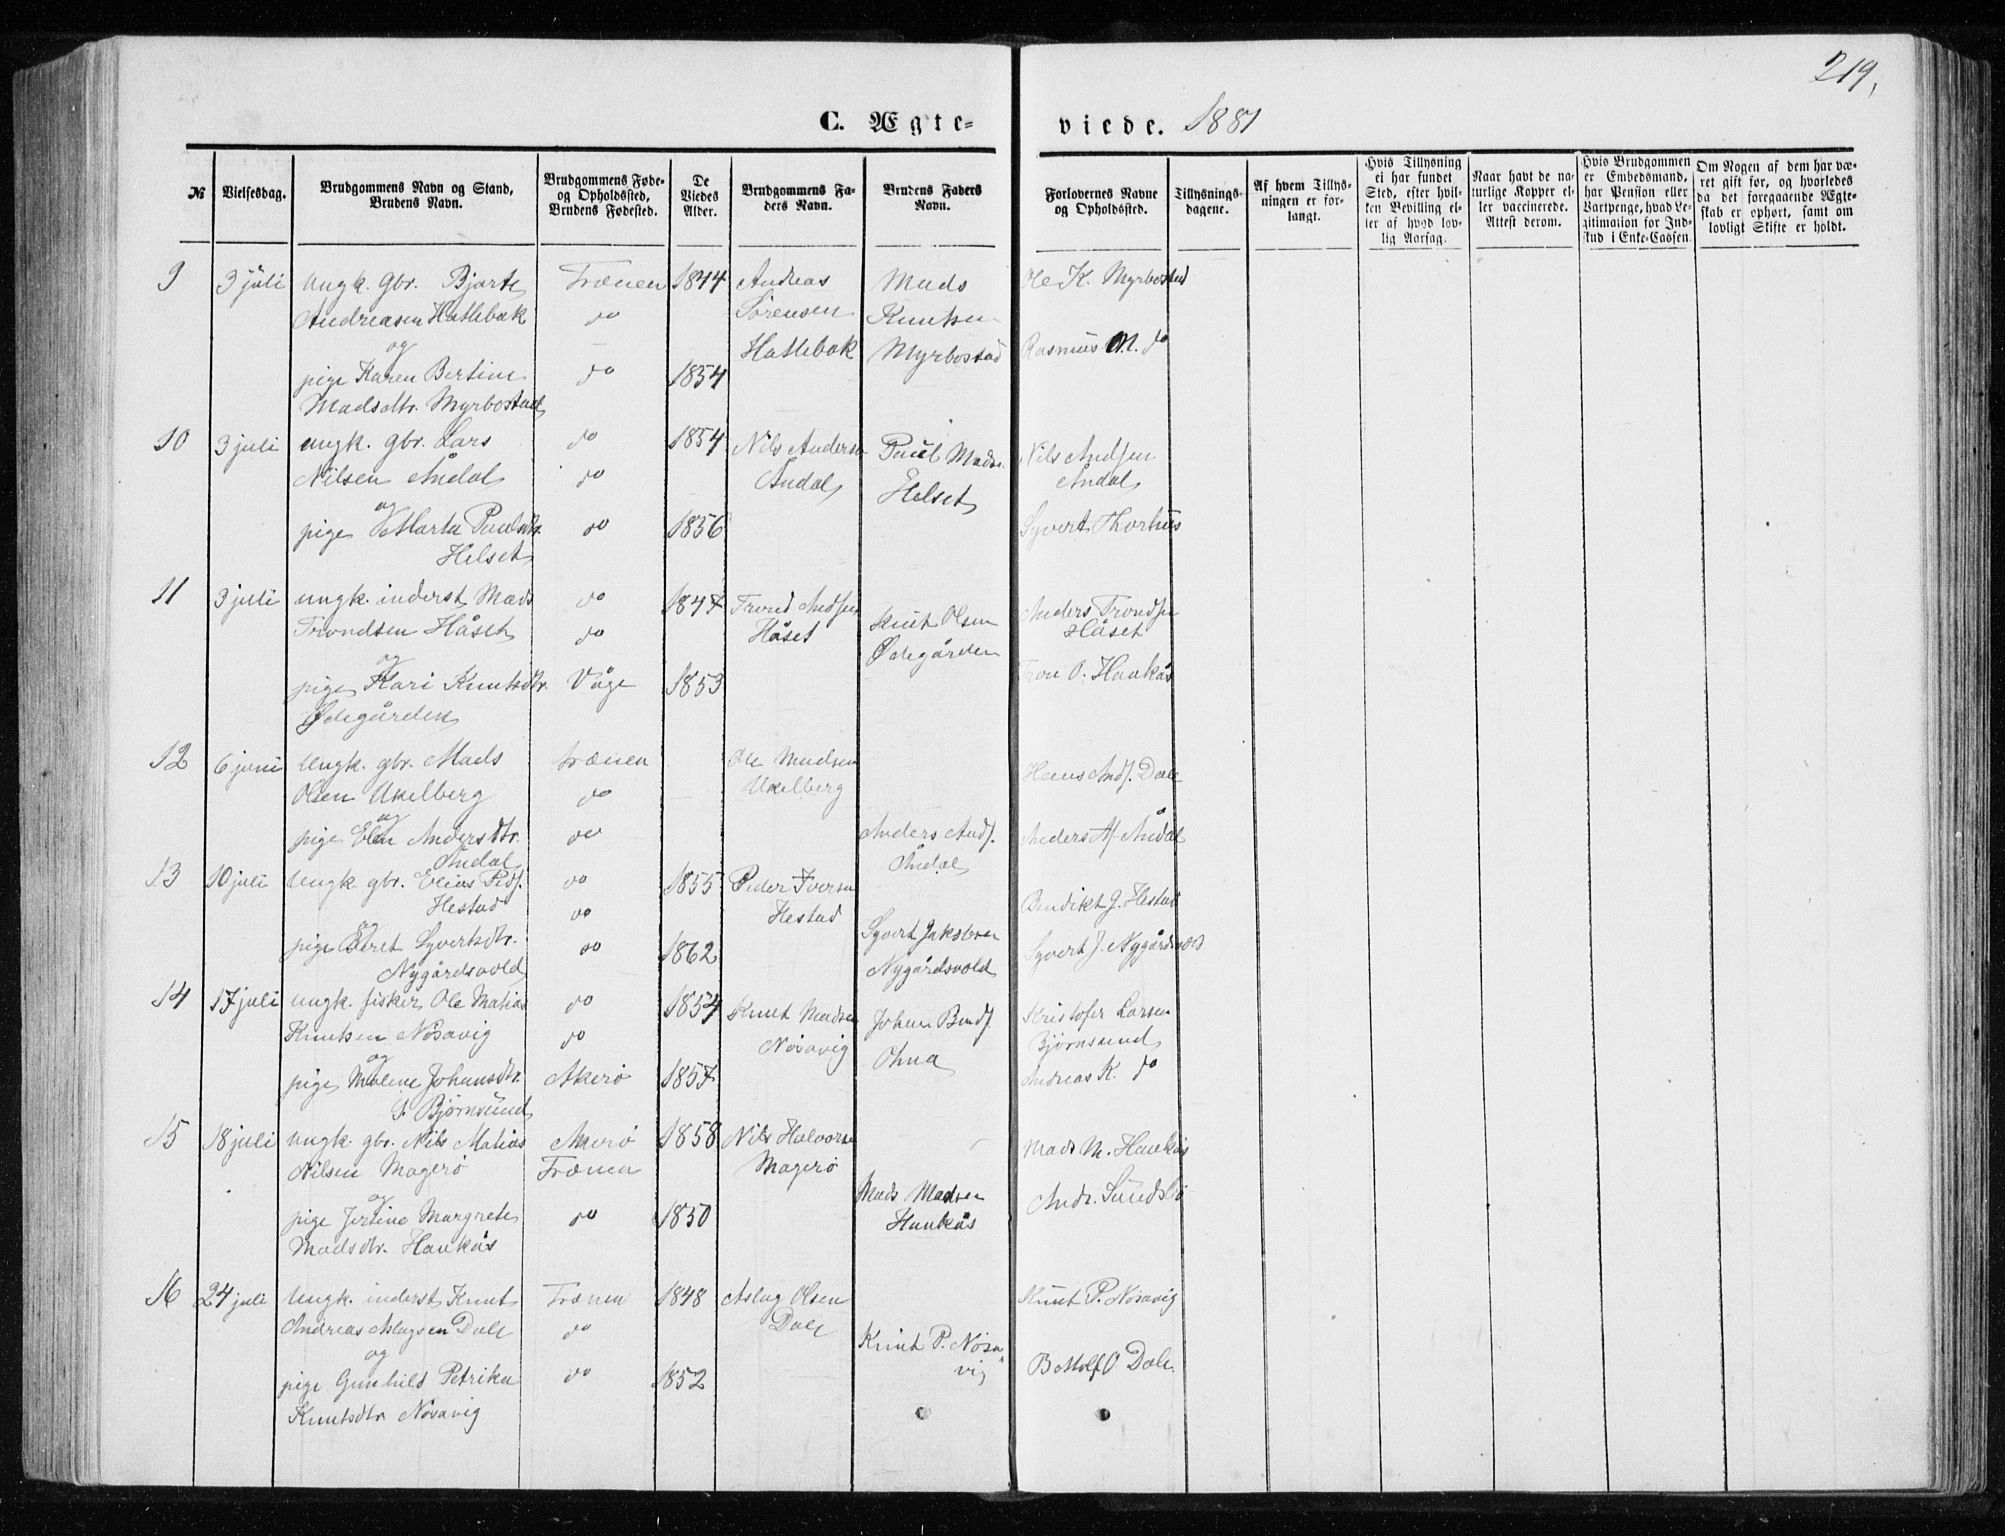 219.
C. Ægte-
viede. 1881
№
Vielsesdag.
Brudgommens Navn og Stand,
Brudens Navn.
Brudgommens Føde-
og Opholdssted,
Brudens Fødested.
De
Viedes
Alder.
Brudgommens Fa-
ders Navn.
Brudens Faders
Navn.
Forlovernes Navne
og Opholdssted.
Tillysnings-
dagene.
Af hvem Tillys-
ningen er for-
langt.
Hvis Tillysning
ei har fundet
Sted, efter hvil-
ken Bevilling el-
ler af hvad lov-
lig Aarsag.
Naar havt de na-
turlige Kopper el-
ler vaccinerede.
Attest derom.
Hvis Brudgommen
er Embedsmand,
har Pension eller
Vartpenge, hvad Le-
gitimation for Ind-
skud i Enke-Cassen.
Om Nogen af dem har væ-
ret gift før, og hvorledes
da det foregaaende Ægte-
skab er ophørt, samt om
lovligt Skifte er holdt.
9
3 juli
Ungk. gbr. Bjarte
Andreasen Hattebak
og
pige Karen Bertine
Madsdtr. Myrbostad
Frænen
do
do
1844
1854
Andreas
Sørensen
Hattebak
Mads
Knutsen
Myrbostad
Ole K. Myrbostad
Rasmus M. do
10
3 juli
ungk. gbr. Lars
Nilsen Åndal
og
pige Marta Paulsdtr.
Helset
do
do
do
1854
1856
Nils Andersen
Åndal
Paul Madsen
Helset
Nils Andsen
Åndal
Syvert Thorhus
11
3 juli
ungk. inderst Mads
Trondsen Håset
og
pige Kari Knutsdtr.
Ødegården
do
do
Våge
1847
1853
Trond Andsen
Håset
Knut Olsen
Ødegården
Anders Trondsen
Håset
Tron O. Haukås
12
6 juni
Ungk. gbr. Mads
Olsen Axelberg
og
pige Elen Andersdtr.
Åndal
Frænen
do
do
Ole Madsen
Axelberg
Anders Ands.
Åndal
Hans Ands. Dale
Anders A. Åndal
13
10 juli
Ungk. gbr. Elias Peds.
Hestad
og
pige Beret Syvertsdtr.
Nygårdsvold
do
do
do
1855
1862
Peder Iversen
Hestad
Syvert Jakobsen
Nygårdsvold
Bendikt J. Hestad
Syvert J. Nygårdsvold
14
17 juli
ungk. fisker Ole Matias
Knutsen Nøsavig
og
pige Malene Johansdtr.
S. Bjørnsund
do
do
Akerø
1854
1857
Knut Madsen
Nøsavig
Johan
Ohna
Kristofer Larsen
Bjørnsund
Andreas K. do
15
18 juli
Ungk. gbr. Nils Matias
Nilsen Magerø
og
pige Jertine Margrete
Madsdtr. Haukås
Akerø
Frænen
do
1858
1850
Nils Halvorsen
Magerø
Mads Madsen
Haukås
Mads M. Haukås
Andr. Sundsbø
16
24 juli
Ungk. inderst Knut
Andreas Aslagsen Dale
og
pige Gunhild Petrika
Knutsdtr. Nøsavig
Frænen
do
do
1848
1852
Aslag Olsen
Dale
Knut P. Nøsa-
vig
Knut P. Nøsavig
Bottolf O Dale.